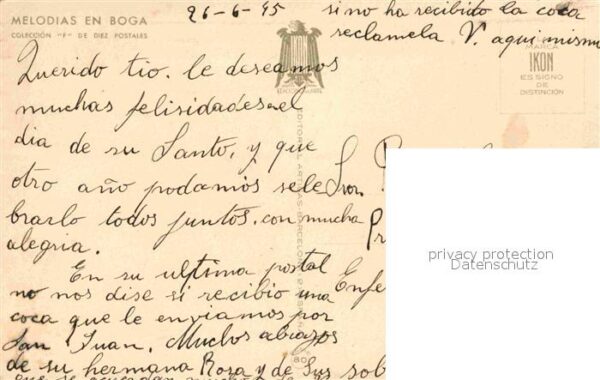 MELODIAS EN BOGA
COLECCIÓN "F" DE DIEZ POSTALES
26-6-45
si no ha recibido la coca
reclamela V. aqui mismo
MARCA
IKON
ES SIGNO
DE
DISTINCIÓN
Querido tio. le deseamos
muchas felisidades el
dia de su Santo, y que
otro año podamos sele
brarlo todos juntos. con mucha
alegria.
En su ultima postal
no nos dise si recibio una
coca que le enviamos por
San Juan. Muchos abrazos
de su hermana Rosa y de sus sob
Sr.
Pr
Enfe
EDITORIAL ARTIGAS BARCELONA
privacy protection
Datenschutz